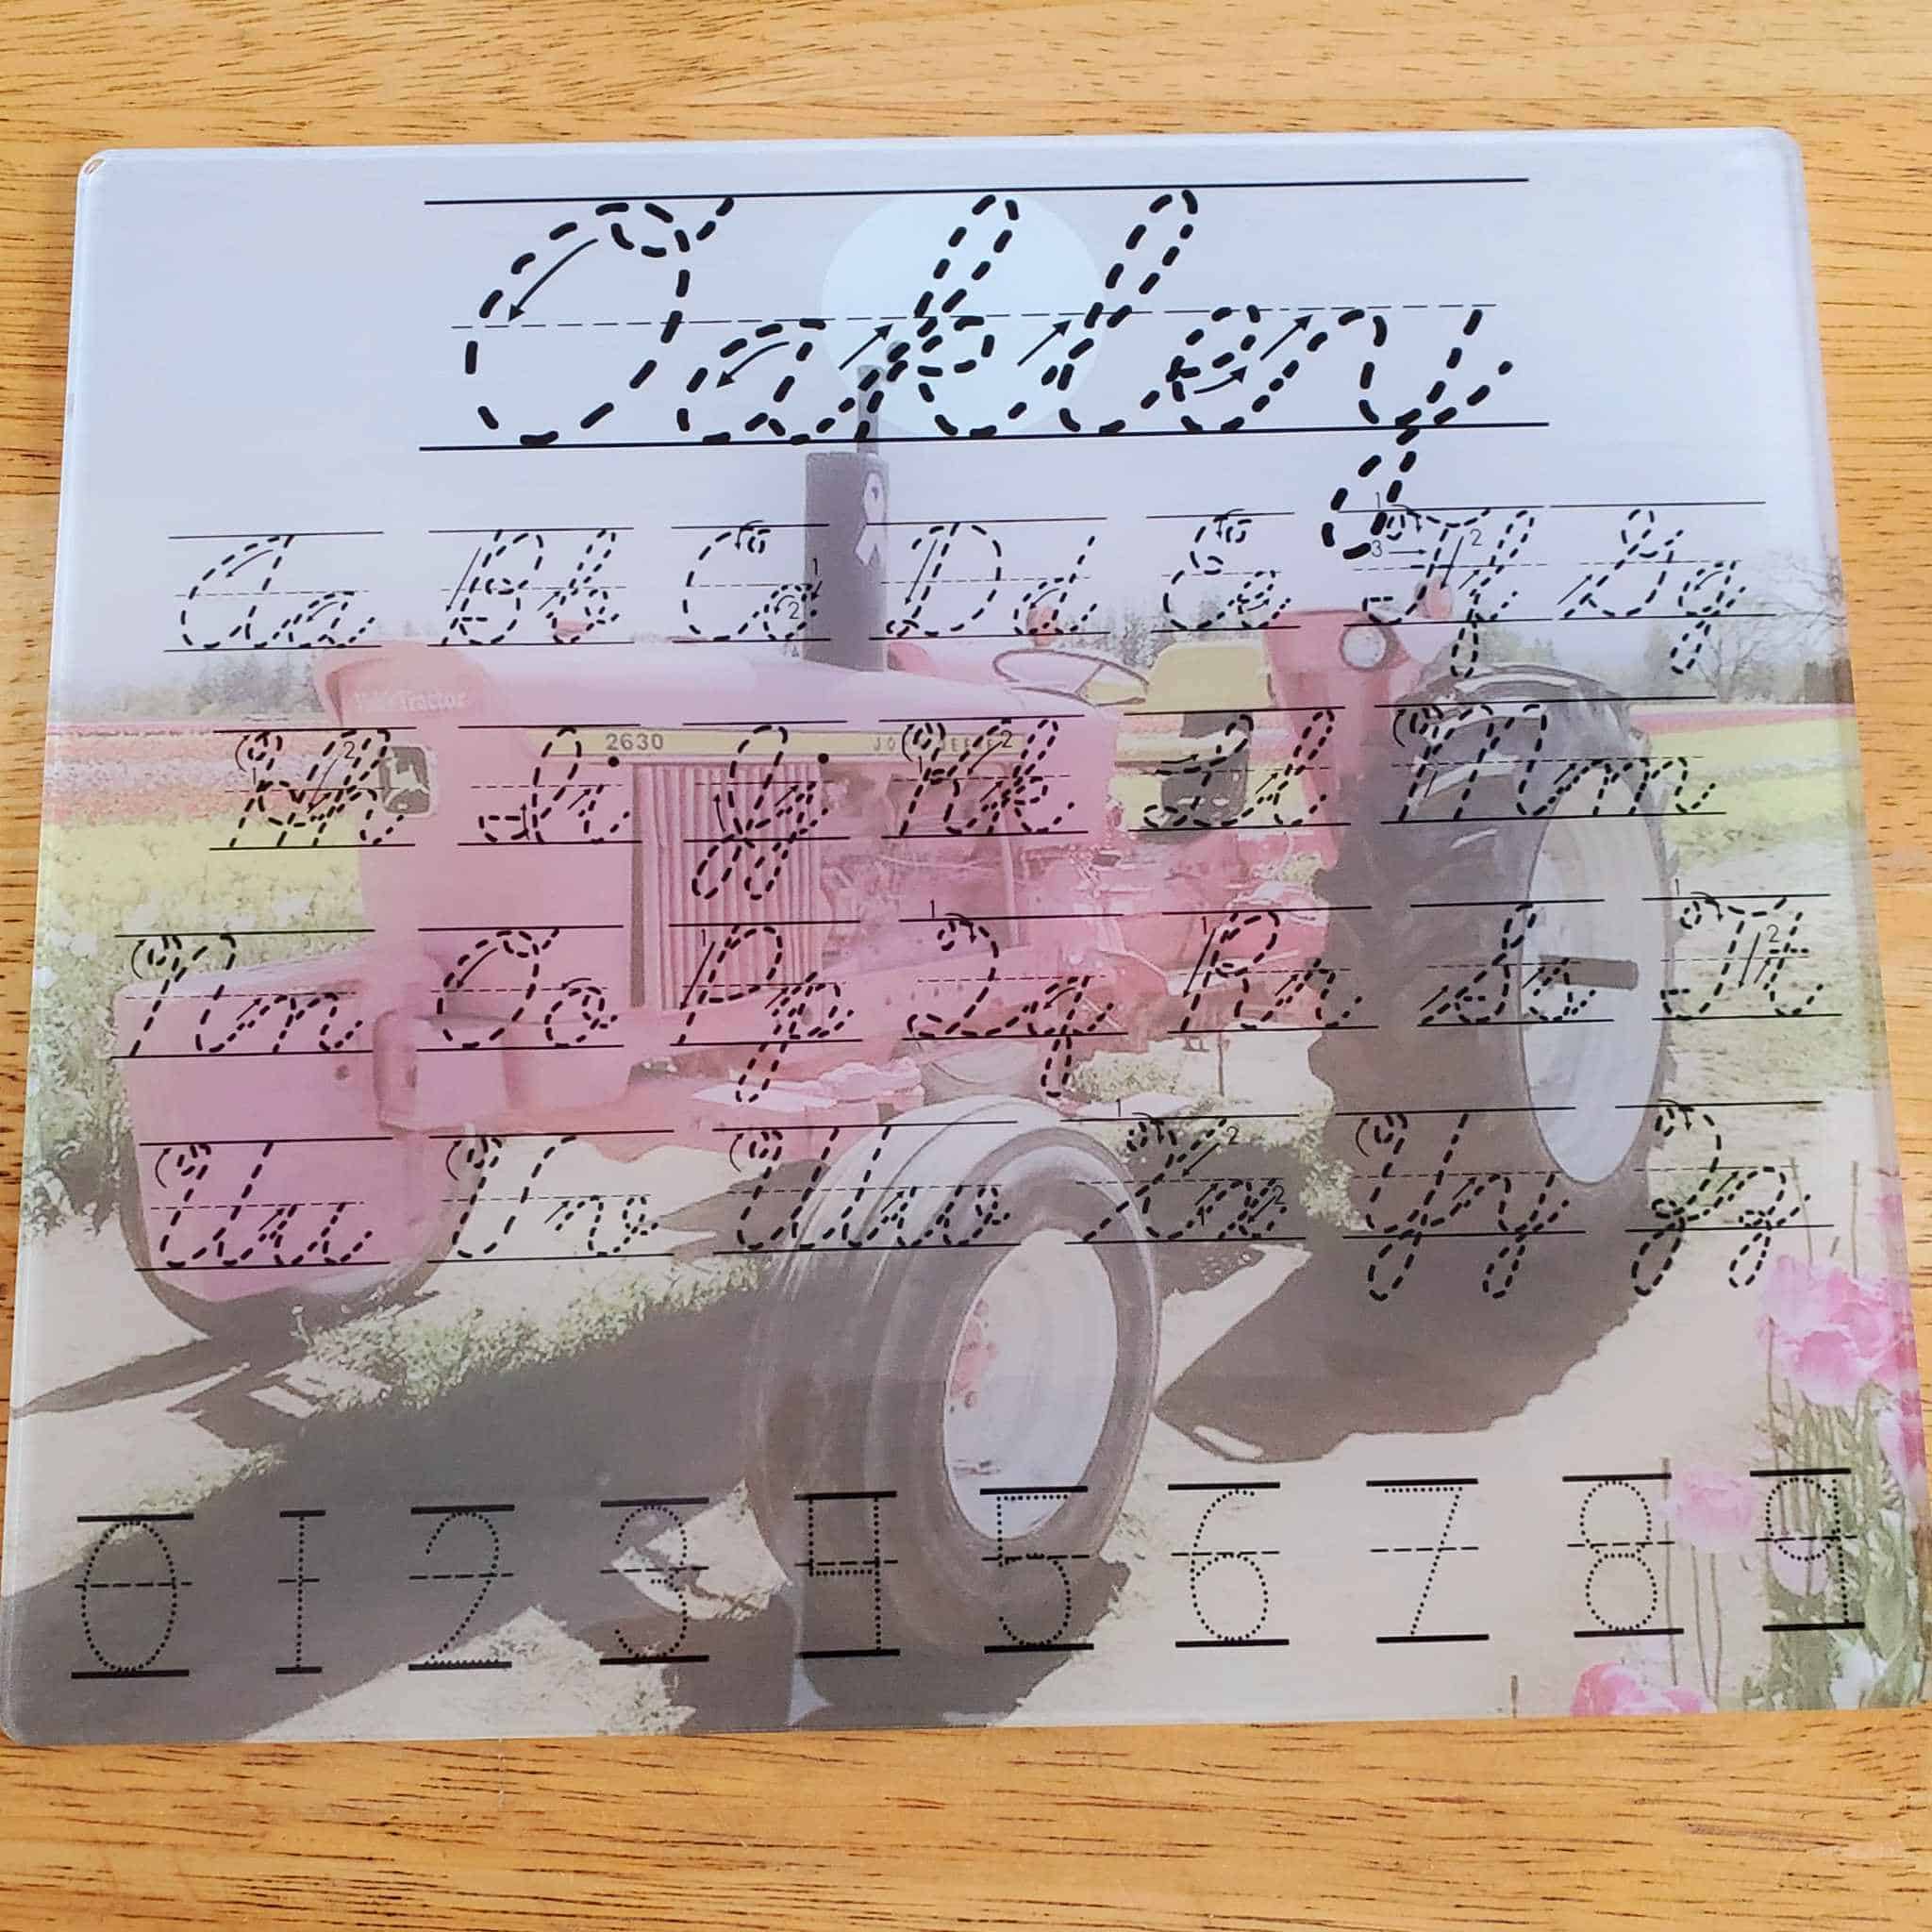 Oakley
Aa Bb Cc Dd Ee Ff Gg
Tractor
2630
Hh Ii Jj Kk Ll Mm
Nn Oo Pp Qq Rr Ss Tt
Uu Vv Ww Xx Yy Zz
0 1 2 3 4 5 6 7 8 9